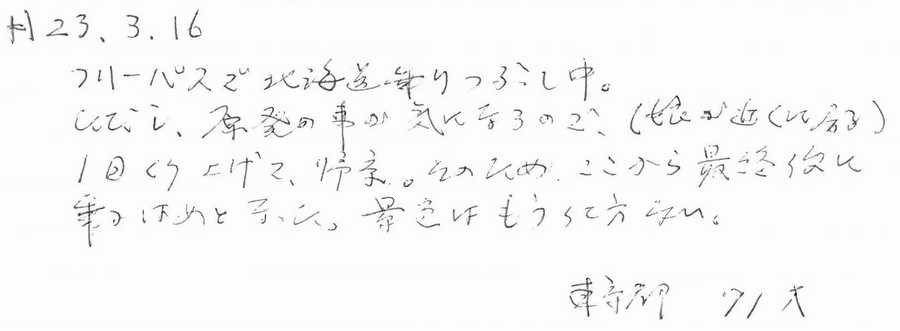 H23.3.16
フリーパスで北海道乗りつぶし中。
しかし、原発の事が気になるので、(娘が近くに居る)
1日くり上げて、帰京。そのため、ここから最終役に
乗るはめと なった。景色はもう 方ない。
東京都